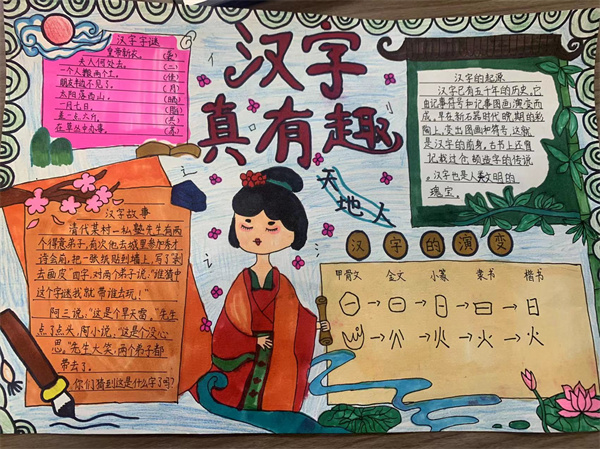 汉字
真有趣
汉字字谜
皇帝新衣
夫人何处去。
一个人躺两个土。
朋友半边不见了。
太阳落西山。
一月七日。
在草丛中办事。
汉字故事
清代某村一私塾先生有两
个得意弟子,有次他去城里参加秀才
诗会前,把一张纸贴到墙上,写了"剥
去画皮"四字,对两个弟子说,"谁猜中
这个字谜我就带谁去玩!"
阿三说,"这是个旱天雷,"先生
点了点头,阿小说,"这是个没心
思。"先生大笑,两个弟子都
带去了。
你们猜到这是什么字了吗?
天地人
汉字的起源
汉字已有五千年的历史,它
由记事符号和记事图画演变而
成,早在新石器时代晚期的彩
陶上,变出图画和符号,这就
是汉字的前身,古书上还有
记载过仓颉造字的传说
。汉字也是人类文明的
瑰宝。
汉字的演变
甲骨文 金文 小篆 隶书 楷书
日
火 火